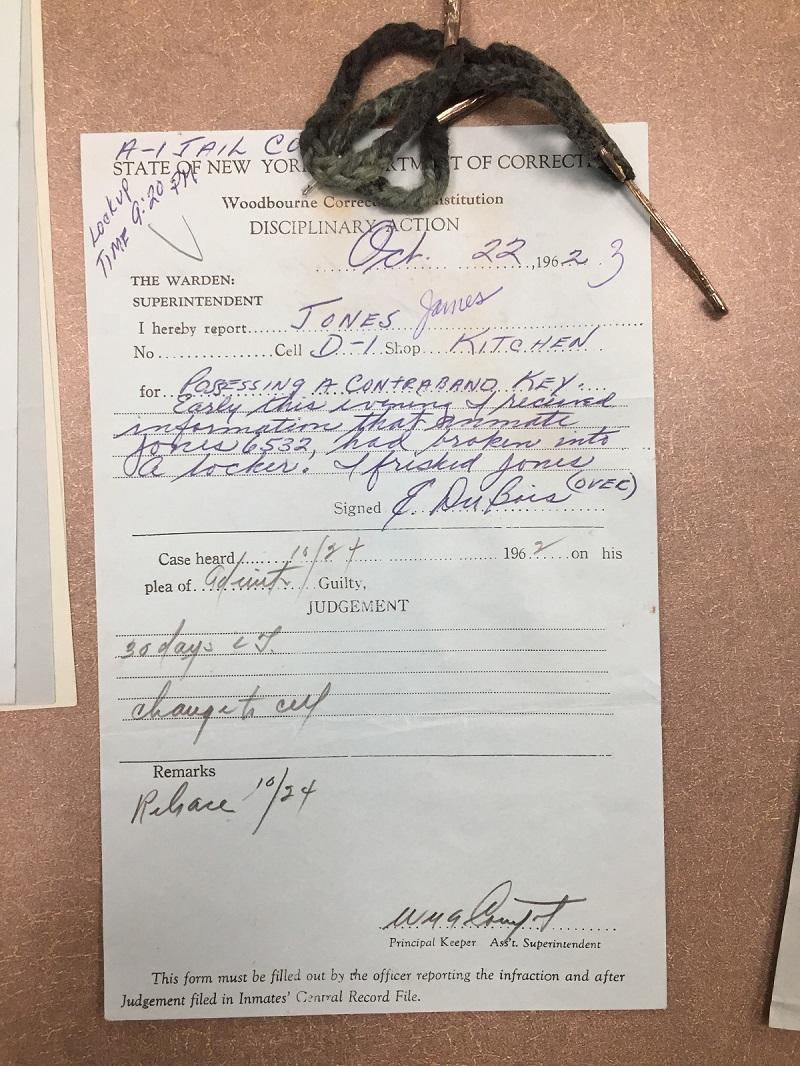 A-1 JAIL CO
STATE OF NEW YOR ARTMENT OF CORRECTI
LOCKUP
TIME 9:20 PM
Woodbourne Correc nstitution
DISCIPLINARY ACTION
Oct. 22, 1962 3
THE WARDEN:
SUPERINTENDENT
I hereby report JONES James
No. Cell D-1 Shop KITCHEN
for POSESSING A CONTRABAND KEY.
Early this evening I received
information that inmate
Jones 6532, had broken into
A locker. I frisked Jones
(OVER)
Signed E. DuBois
Case heard 10/24 1962 on his
plea of Admit Guilty,
JUDGEMENT
30 days
change to cell
Remarks
Release 10/24
Principal Keeper Ass't. Superintendent
This form must be filled out by the officer reporting the infraction and after
Judgement filed in Inmates' Central Record File.